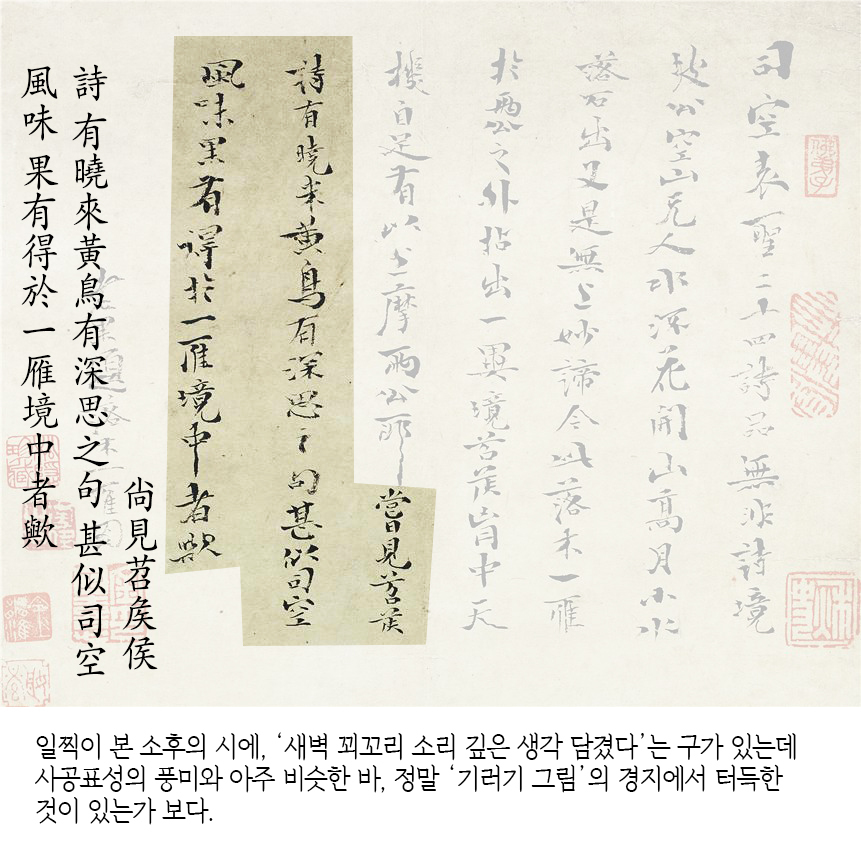 司空表聖二十四詩品無非詩境
坡公空山无人水流花開山高月小水
落石出又是無上妙諦今此落木一雁
於兩公之外拈出一異境苕侯胸中天
機自足有以上摩兩公耶嘗見苕侯
詩有曉來黃鳥有深思之句甚似司空
風味果有得於一雁境中者歟
尙見苕矣侯
詩有曉來黃鳥有深思之句甚似司空
風味果有得於一雁境中者歟
일찍이 본 소후의 시에, ‘새벽 꾀꼬리 소리 깊은 생각 담겼다’는 구가 있는데
사공표성의 풍미와 아주 비슷한 바, 정말 ‘기러기 그림’의 경지에서 터득한
것이 있는가 보다.